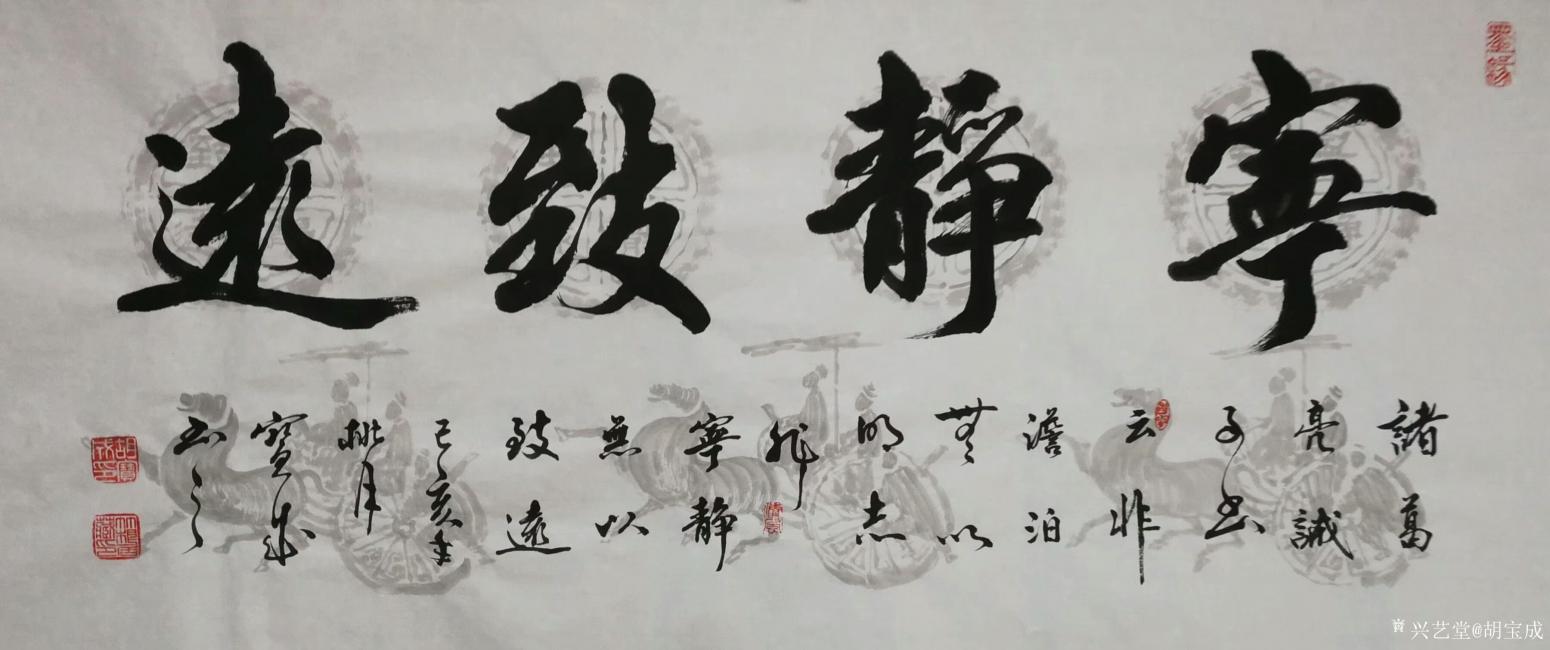 寧靜致遠
諸葛
亮誡
子書
云非
澹泊
無以
明志
非
寧靜
無以
致遠
己亥年
桃月
寶成
書之
胡寶成印
兴艺堂@胡宝成